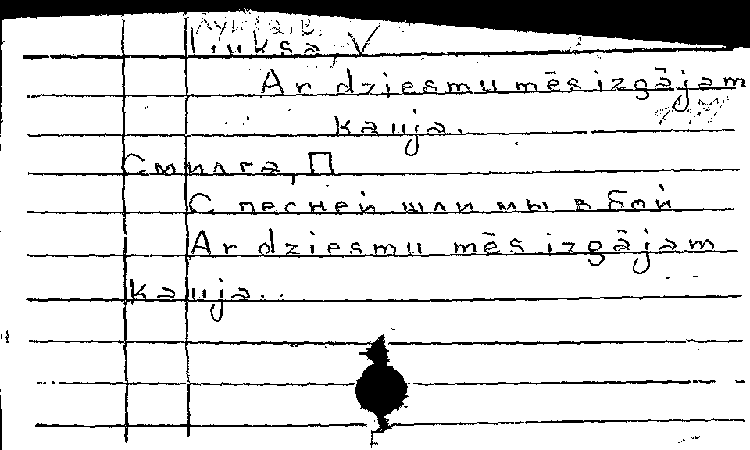 Lūksa, V
Ar dziesmu mēs izgājam
kauja.
Смилга, П
С песней шли мы в бой
Ar dziesmu mēs izgājam
kauja..